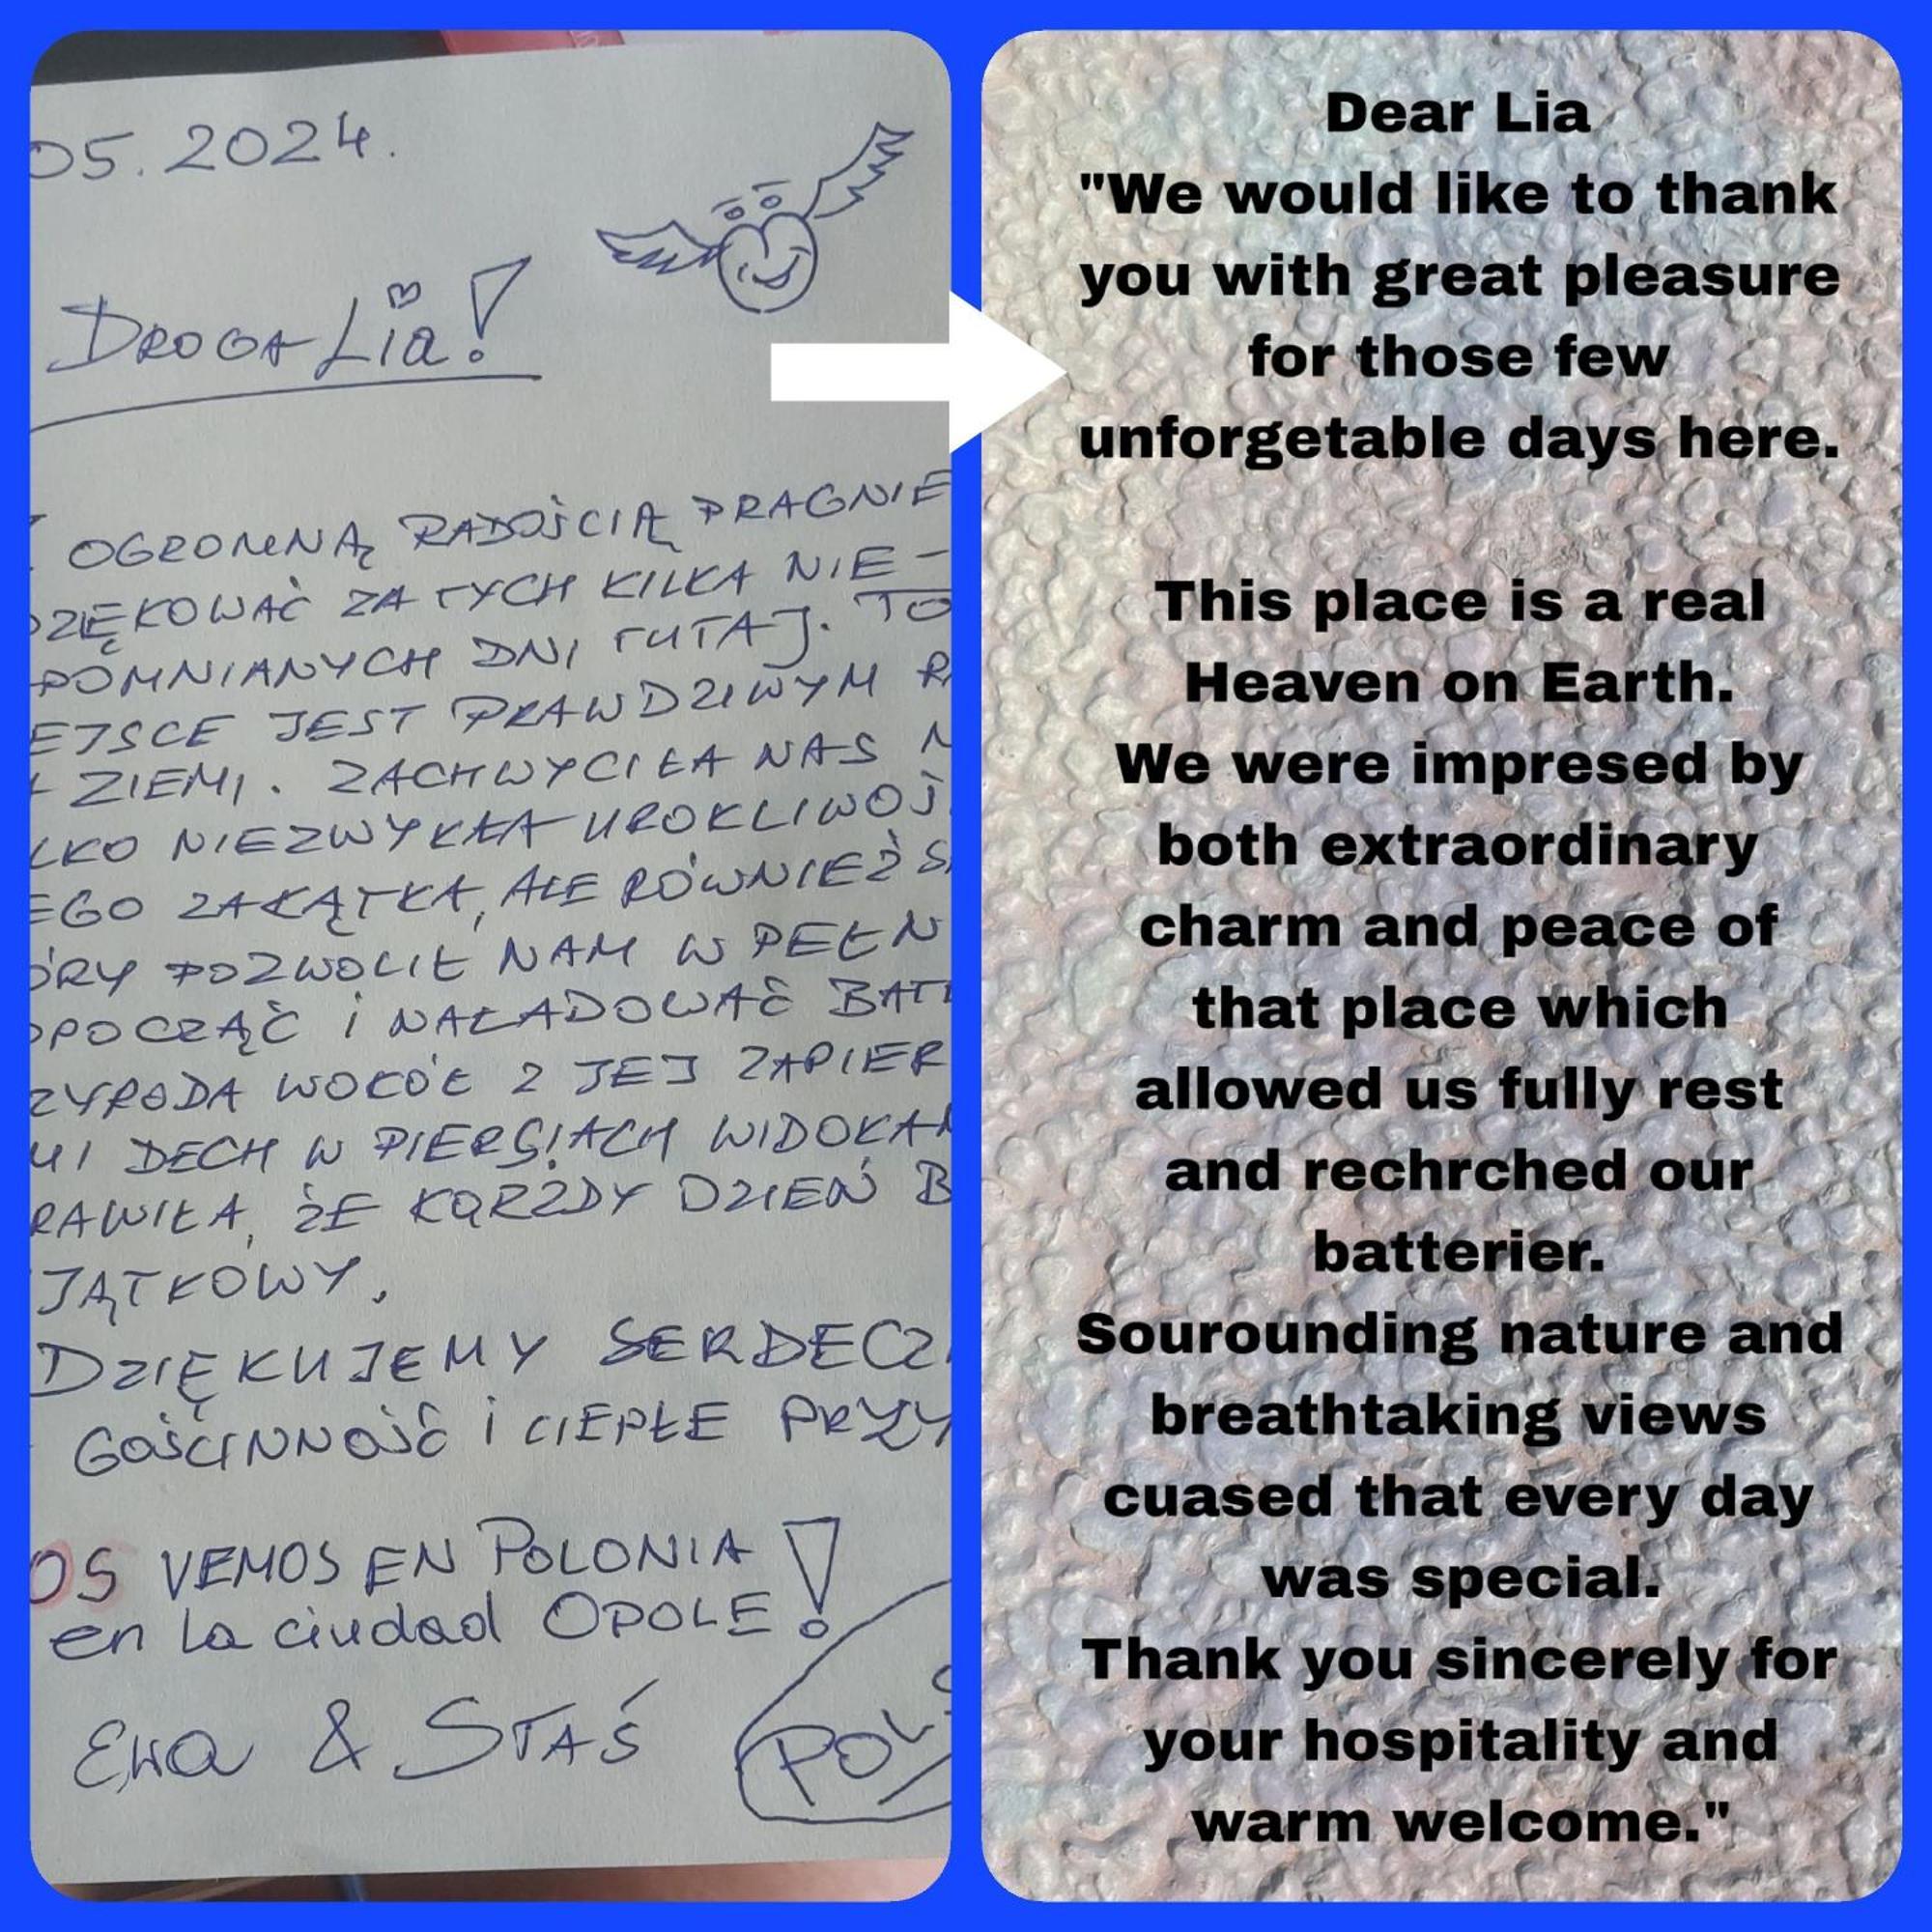 05.2024.
DROGA Lia!
OGROMNĄ RADOŚCIĄ PRAGNIE
DZIĘKOWAĆ ZA TYCH KILKA NIE-
POMNIANYCH DNI TUTAJ. TO
EJSCE JEST PRAWDZIWYM RA
ZIEMI. ZACHWYCIŁA NAS N
LKO NIEZWYKŁA UROKLIWOŚ
EGO ZAKĄTKA, ALE RÓWNIEŻ S
ÓRY POZWOLIŁ NAM W PEŁN
OPOCZĄĆ i NAŁADOWAĆ BATE
ZYRODA WOKÓŁ Z JEJ ZAPIER
MI DECH W PIERSIACH WIDOKAM
RAWIŁA, ŻE KAŻDY DZIEŃ B
JĄTKOWY.
DZIĘKUJEMY SERDECZ
GOŚCINNOŚĆ i CIEPŁE PRZY
OS VEMOS EN POLONIA!
en la ciudad OPOLE!
Ewa & STAŚ
POLS
Dear Lia
"We would like to thank
you with great pleasure
for those few
unforgetable days here.
This place is a real
Heaven on Earth.
We were impresed by
both extraordinary
charm and peace of
that place which
allowed us fully rest
and rechrched our
batterier.
Sourounding nature and
breathtaking views
cuased that every day
was special.
Thank you sincerely for
your hospitality and
warm welcome."